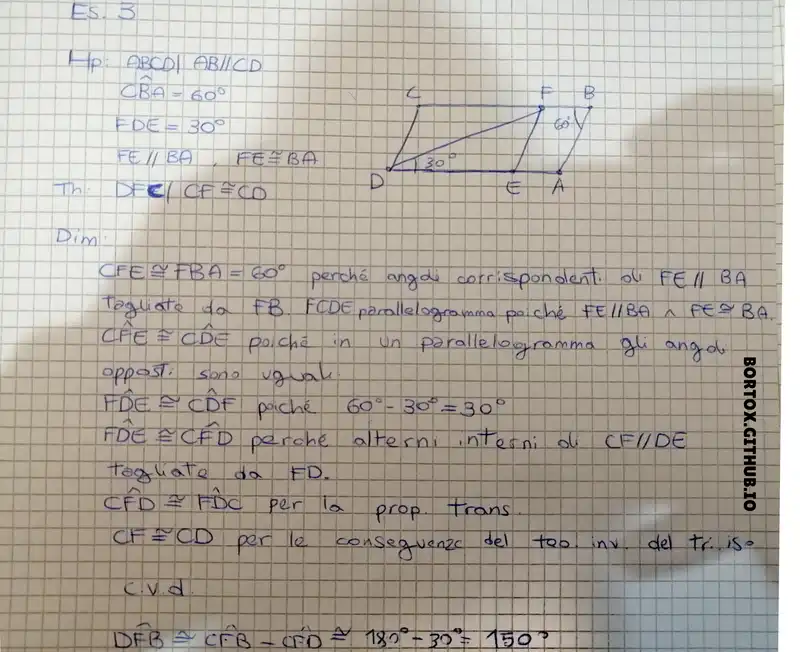 Es. 3
Hp: ABCD| AB//CD
CB̂A = 60°
FDE = 30°
FE // BA , FE ≅ BA
Th: DFC| CF ≅ CD
C F B
60°
30°
D E A
Dim:
CFE ≅ FBA = 60° perché angoli corrispondenti di FE // BA
tagliate da FB. FCDE parallelogramma poiché FE//BA ∧ FE ≅ BA.
CF̂E ≅ CD̂E poiché in un parallelogramma gli angoli
opposti sono uguali.
FD̂E ≅ CD̂F poiché 60° - 30° = 30°
FD̂E ≅ CF̂D perché alterni interni di CF//DE
tagliate da FD.
CF̂D ≅ FD̂C per la prop. trans.
CF ≅ CD per le conseguenze del teo. inv. del tr. iso
c.v.d.
DF̂B ≅ CF̂B - CF̂D ≅ 180° - 30° = 150°
BORTOX.GITHUB.IO